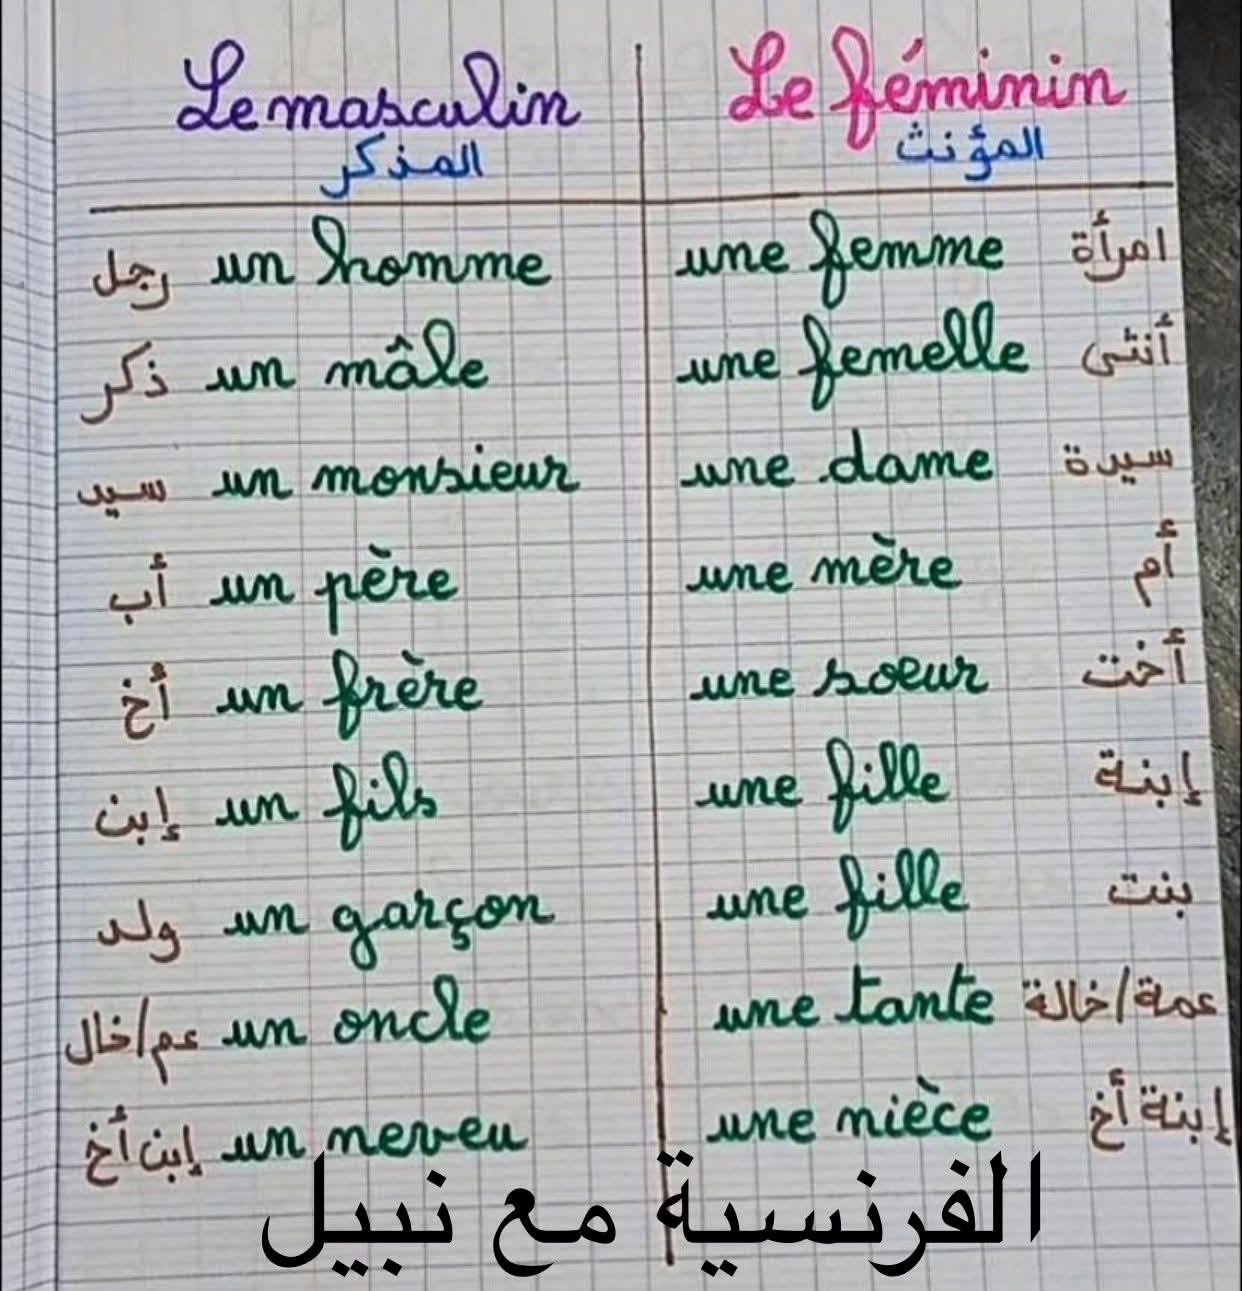 Le masculin Le féminin
المذكر المؤنث
رجل un homme une femme امرأة
ذكر un mâle une femelle أنثى
سيد un monsieur une dame سيدة
أب un père une mère أم
أخ un frère une soeur أخت
إبن un fils une fille إبنة
ولد un garçon une fille بنت
عم/خال un oncle une tante عمة/خالة
إبن أخ un neveu une nièce إبنة أخ
الفرنسية مع نبيل